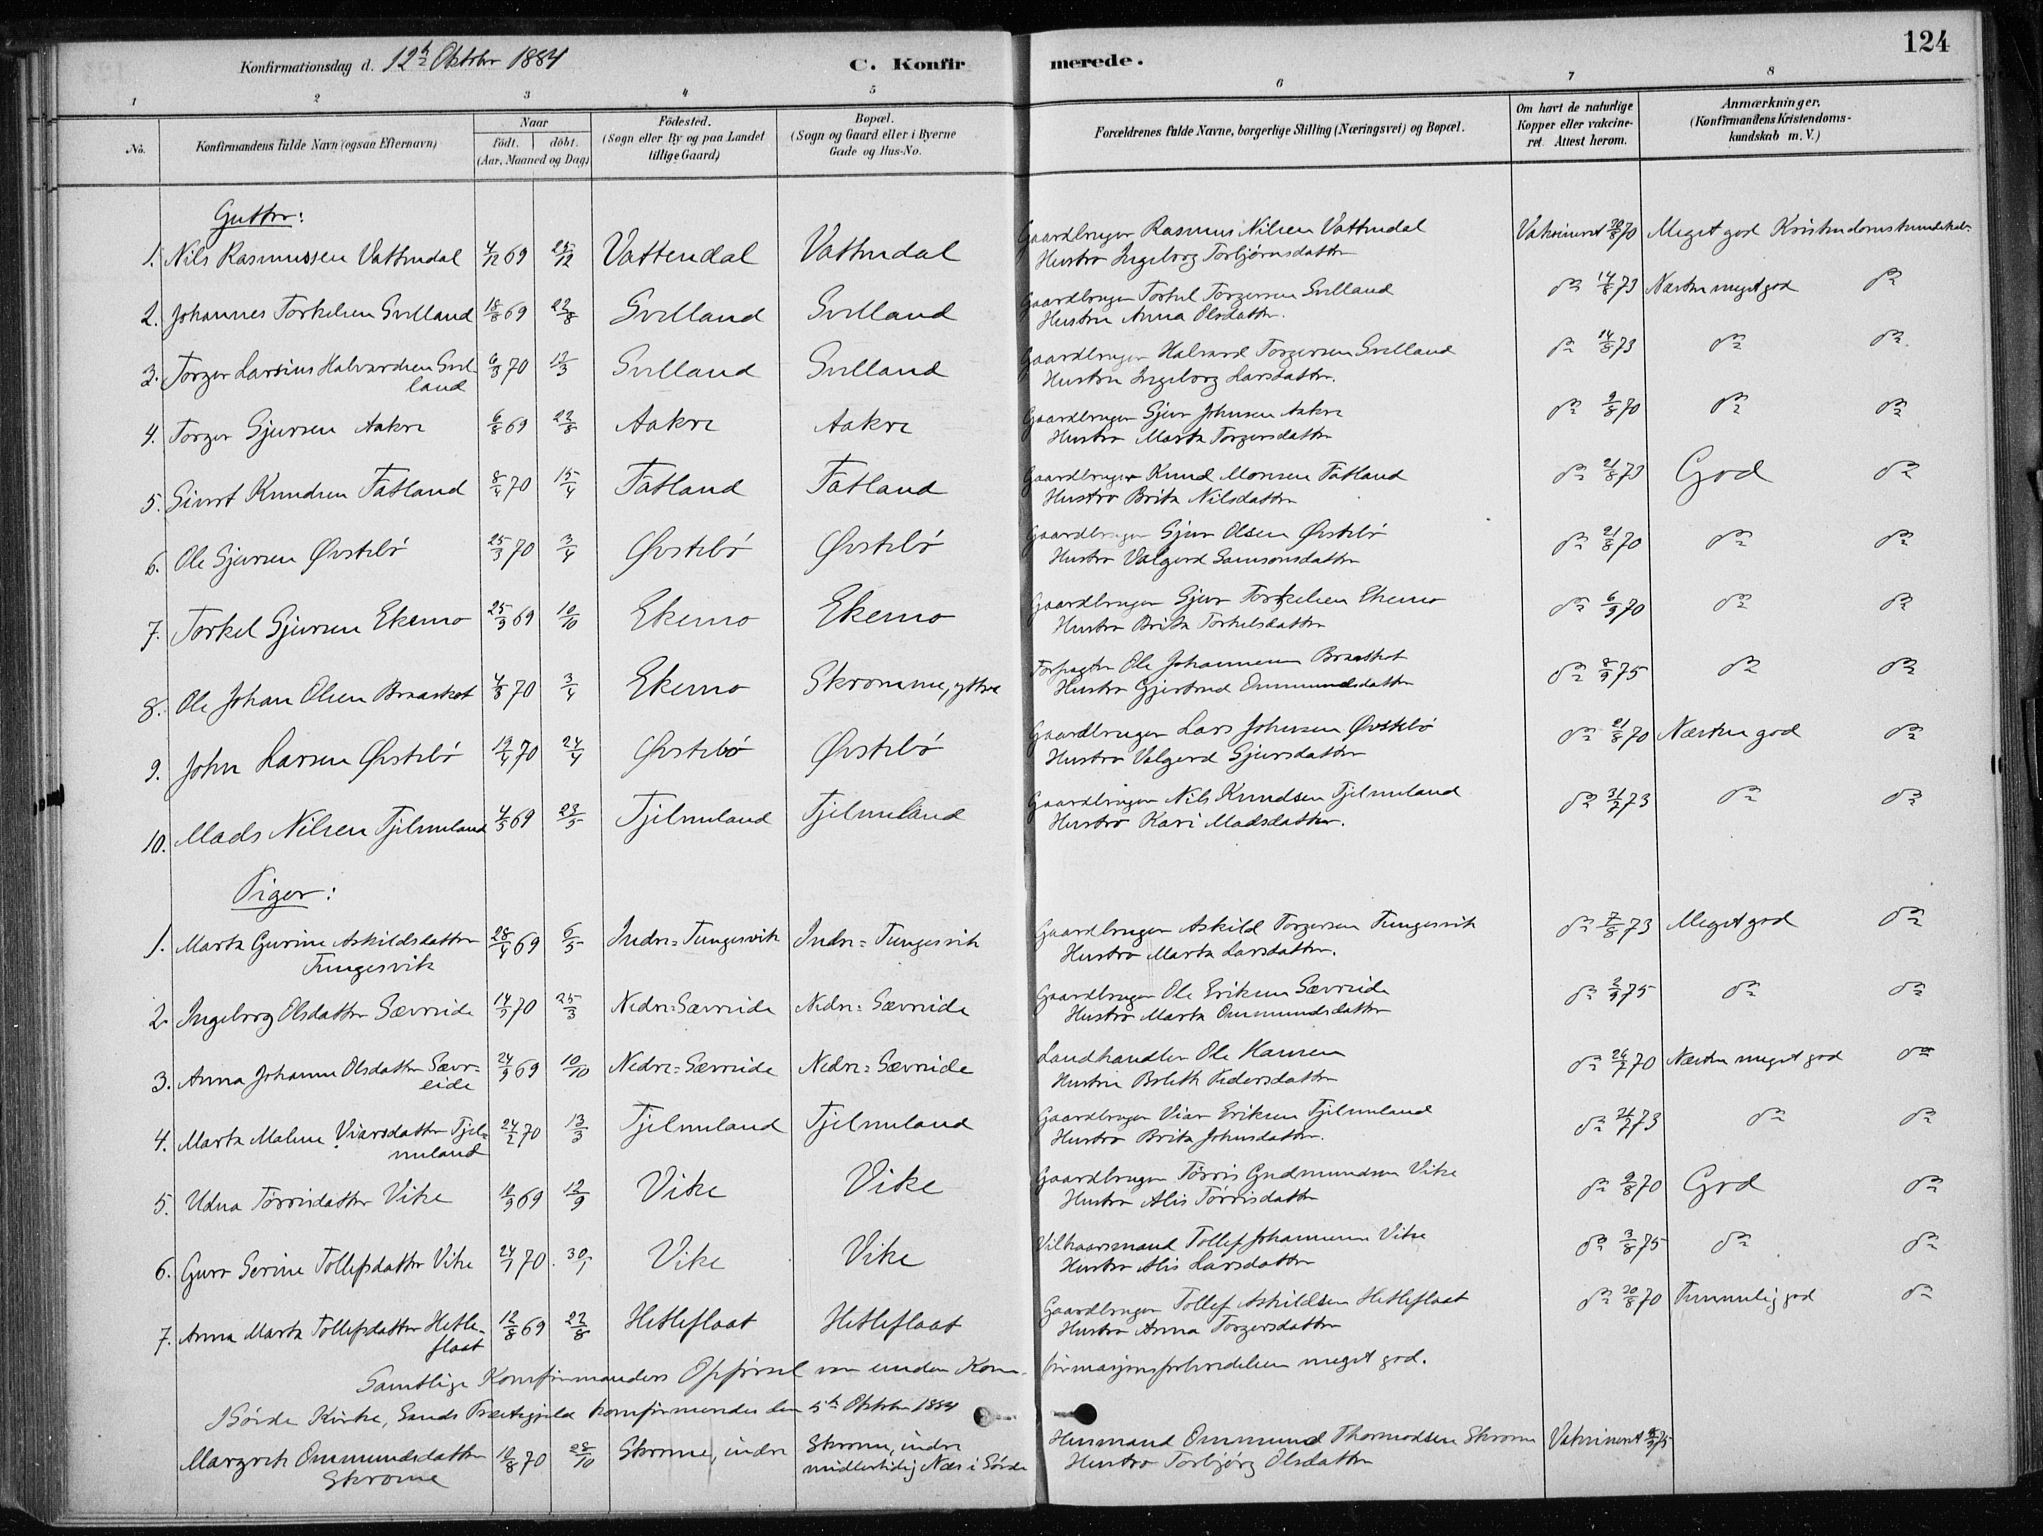 124
Konfirmationsdag d. 12te Oktober 1884
C. Konfirmerede.
1 2 3 4 5 6 7 8
No.
Konfirmandens fulde Navn (ogsaa Efternavn)
Naar
födt. döbt.
(Aar, Maaned og Dag)
Födested.
(Sogn eller By og paa Landet tillige Gaard)
Bopæl.
(Sogn og Gaard eller i Byerne Gade og Hus-No.
Forældrenes fulde Navne, borgerlige Stilling (Næringsvei) og Bopæl.
Om havt de naturlige Kopper eller vakcineret. Attest herom.
Anmærkninger. (Konfirmandens Kristendomskundskab m. V.)
Gutter:
1. Nils Rasmussen Vattendal 4/12 69 25/12 Vattendal Vattendal Gaardbruger Rasmus Nilsen Vattendal Vakcineret 20/8 70 Meget god Kristendomskundskab.
Hustro Ingeborg Torbjørnsdatter
2. Johannes Torkelsen Svelland 18/8 69 22/8 Svelland Svelland Gaardbruger Torkel Torgersen Svelland do 14/8 73 Næsten meget god do
Hustru Anna Olsdatter.
3. Torger Larsius Halvardsen Svelland 6/3 70 13/3 Svelland Svelland Gaardbruger Halvard Torgersen Svelland do 14/8 73 do do
Hustru Ingeborg Larsdatter.
4. Torger Sjursen Aakre 6/8 69 22/8 Aakre Aakre Gaardbruger Sjur Johnsen Aakre do 9/8 70 do do
Hustro Marta Torgersdatter
5. Sivert Knudsen Fatland 8/4 70 15/4 Fatland Fatland Gaardbruger Knud Monsen Fatland do 21/8 73 God do
Hustro Brita Nilsdatter
6. Ole Sjursen Øvstebö 25/3 70 3/4 Øvstebö Øvstebö Gaardbruger Sjur Olsen Øvstebö do 21/8 70 do do
Hustro Valgerd Samsonsdatter
7. Torkel Sjursen Ekemo 25/9 69 10/10 Ekemo Ekemo Gaardbruger Sjur Torkelsen Ekemo do 6/9 70 do do
Hustro Brita Torkelsdatter
8. Ole Johan Olsen Braaskot 4/3 70 3/4 Ekemo Skromme, ytre Forpagter Ole Johannesen Braaskot do 8/9 75 do do
Hustro Gjertrud Ommundsdatter
9. John Larsen Øvstebö 19/4 70 24/4 Øvstebö Øvstebö Gaardbruger Lars Johnsen Øvstebö do 21/8 70 Næsten god do
Hustro Valgerd Sjursdatter
10. Mads Nilsen Tjelmeland 4/5 69 23/5 Tjelmeland Tjelmeland Gaardbruger Nils Knudsen Tjelmeland do 31/7 73 do do
Hustro Kari Madsdatter.
Piger:
1. Marta Gurine Askildsdatter Tungesvik 28/4 69 6/5 Indre=Tungesvik Indre=Tungesvik Gaardbruger Askild Torgersen Tungesvik do 7/8 73 Meget god do
Hustro Marta Larsdatter.
2. Ingeborg Olsdatter Sævreide 14/3 70 25/3 Nedre=Sævreide Nedre=Sævreide Gaardbruger Ole Eriksen Sævreide do 2/9 75 do do
Hustro Marta Ommundsdatter
3. Anna Johanne Olsdatter Sævreide 24/9 69 10/10 Nedre=Sævreide Nedre=Sævreide Landhandler Ole Hansen do 26/7 70 Næsten meget god do
Hustru Bolette Pedersdatter
4. Marta Malene Viarsdatter Tjelmeland 24/2 70 13/3 Tjelmeland Tjelmeland Gaardbruger Viar Eriksen Tjelmeland do 21/7 73 do do
Hustro Brita Johnsdatter.
5. Udna Tørrisdatter Vike 10/9 69 12/9 Vike Vike Gaardbruger Tørris Gudmundsen Vike do 9/8 70 God do
Hustro Alis Tørrisdatter
6. Guro Serine Tollefsdatter Vike 24/1 70 30/1 Vike Vike Vilkaarsmand Tollef Johannesen Vike do 3/8 75 do do
Hustro Alis Larsdatter
7. Anna Marta Tollefsdatter Hetlefloat 12/8 69 22/8 Hetlefloat Hetlefloat Gaardbruger Tollef Askildsen Hetlefloat do 20/8 70 Temmelig god do
Hustro Anna Torgersdatter
Samtlige Konfirmanders Opførsel var under Konfirmasjonsforberedelsen meget god.
I Sövde Kirke, Sands Præstegjeld konfirmeredes den 5te Oktober 1884
Margrete Ommundsdatter Skrome 10/8 70 28/10 Skrome, indre Skrome, indre midlertidig Næs i Sövde Husmand Ommund Thormodsen Skrome Vakcineret
Hustro Torbjørg Olsdatter